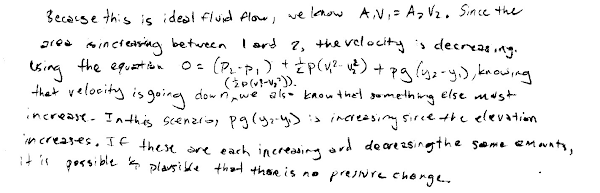 Because this is ideal fluid flow, we know A₁V₁ = A₂V₂. Since the
area is increasing between 1 and 2, the velocity is decreasing.
Using the equation 0 = (P₂-P₁) + ½ρ(v₁²-v₂²) + ρg(y₂-y₁), knowing
that velocity is going down (½ρ(v₁²-v₂²)), we also know that something else must
increase. In this scenario, ρg(y₂-y₁) is increasing since the elevation
increases. If these are each increasing and decreasing the same amounts,
it is possible & plausible that there is no pressure change.